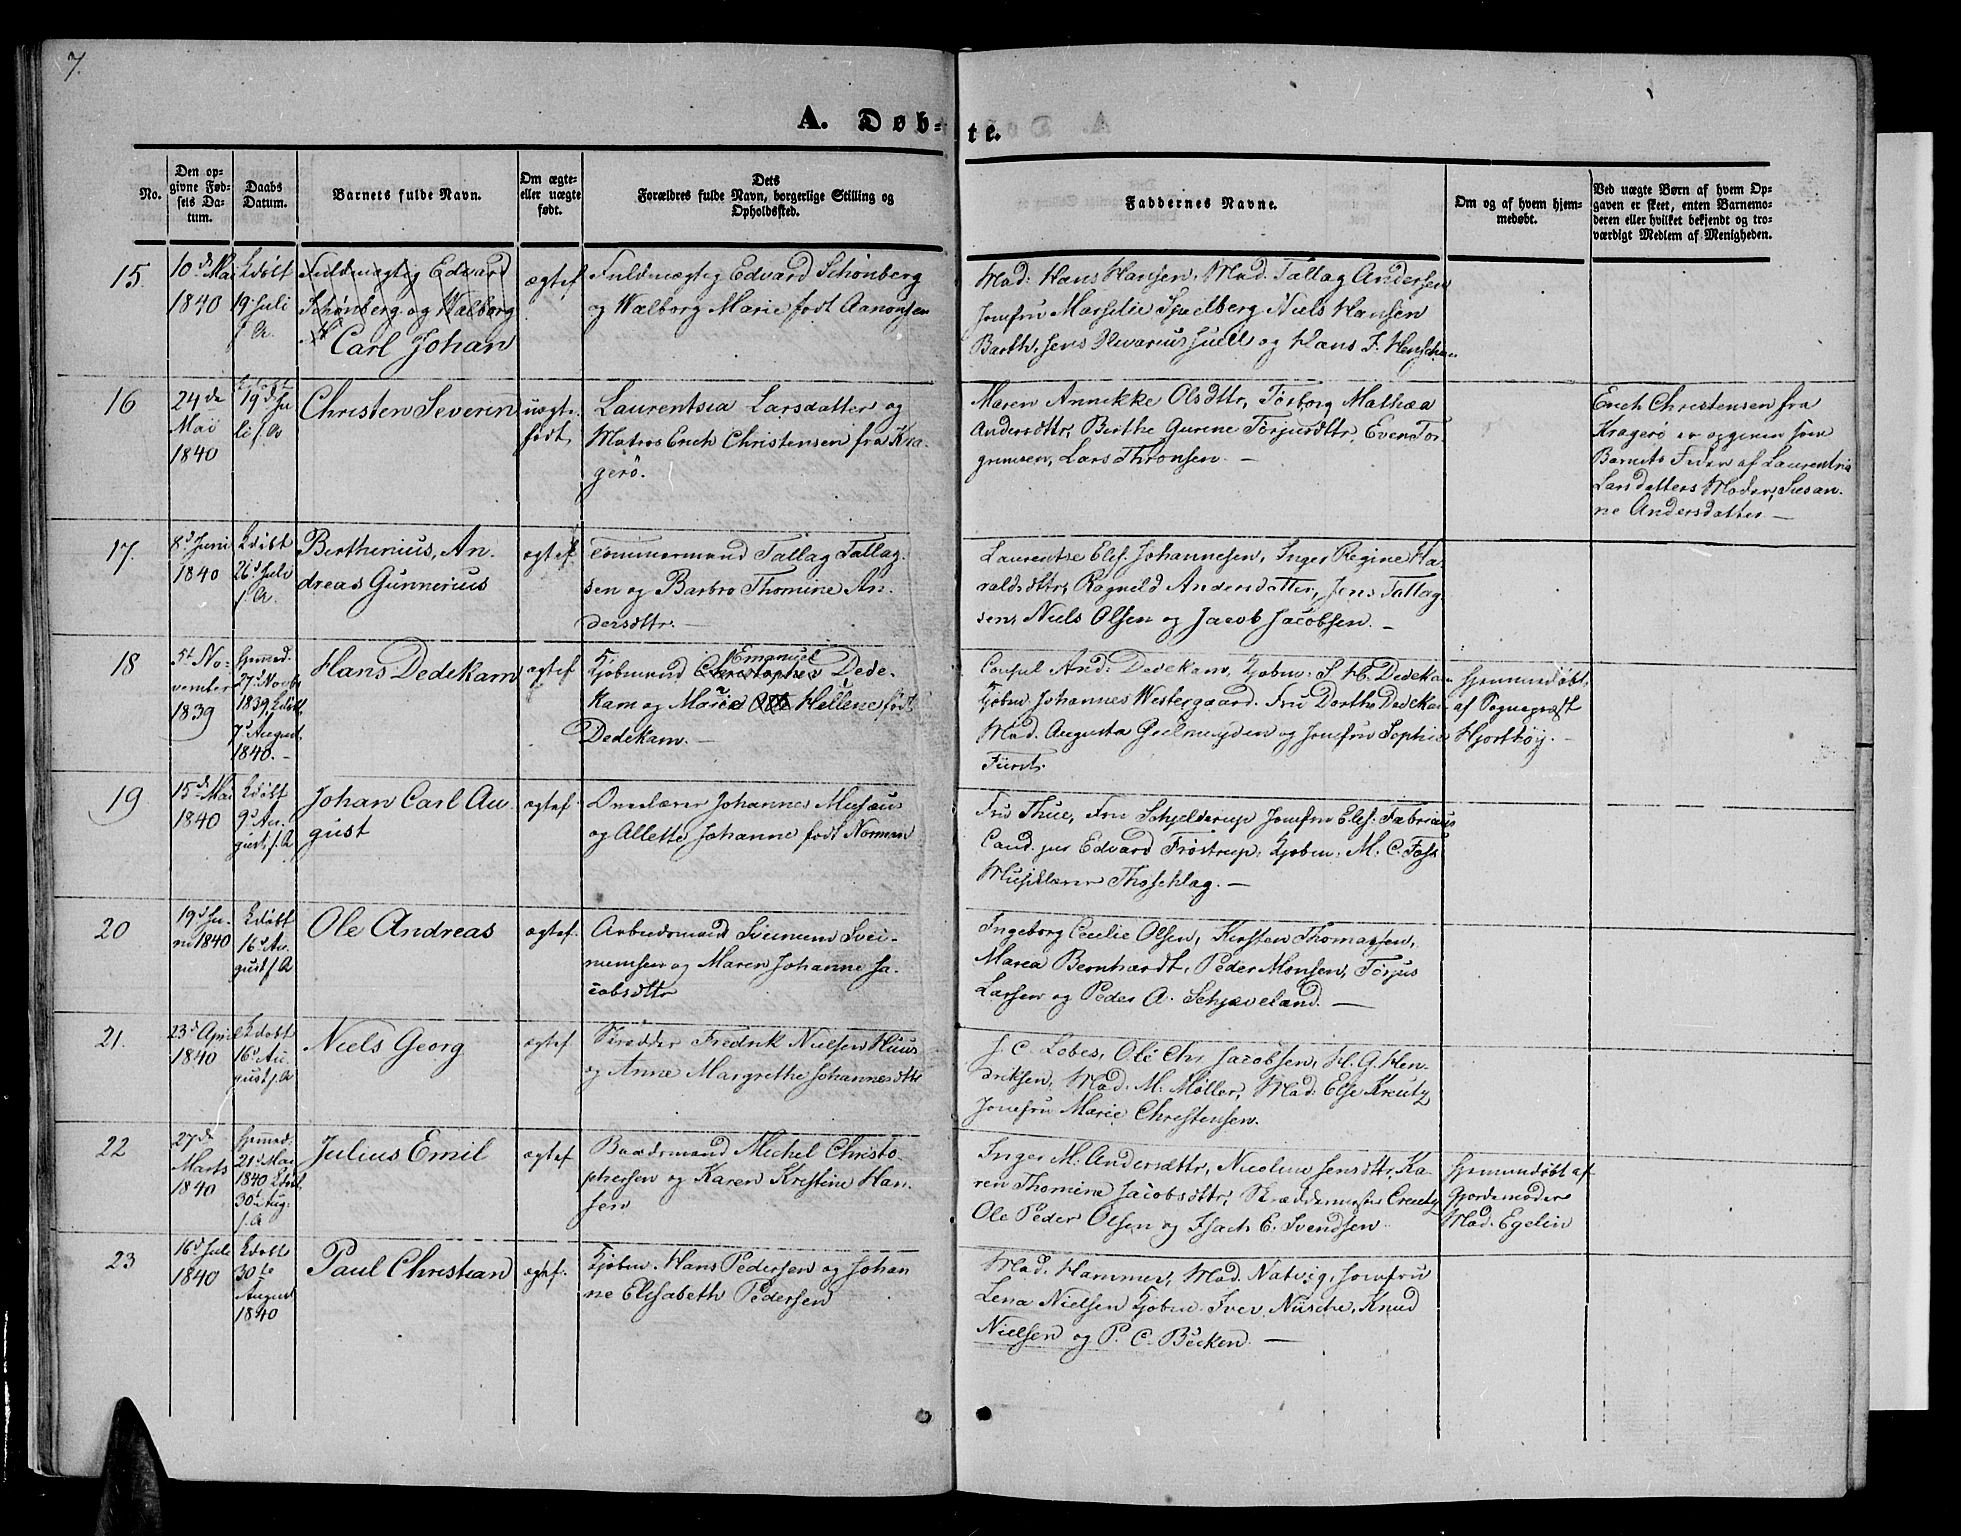 7.
A. Døb-
te.
No.
Den op-
givne Fød-
sels Da-
tum.
Daabs
Datum.
Barnets fulde Navn.
Om ægte-
eller uægte
født.
Dets
Forældres fulde Navn, borgerlige Stilling og
Opholdssted.
Faddernes Navne.
Om og af hvem hjem-
medøbt.
Ved uægte Børn af hvem Op-
gaven er skeet, enten Barnemo-
deren eller hvilket bekjendt og tro-
værdigt Medlem af Menigheden.
15.
10de Mai
1840
Kdøbt
19. Juli
f. A.
Fuldmægtig Edvard
Schønberg og Walborg
Carl Johan
ægtef.
Fuldmægtig Edvard Schønberg
og Walborg Marie født Aanonsen
Mad: Hans Hansen, Mad. Tallag Andersen
Jomfru Marselie Spielberg Niels Hansen
Barth, Jens Nevarius Juell og Hans F. Henschien
16
24de
Mai
1840
Kdøbt
19d Ju
li f. A.
Christen Severin
uægte
født
Laurentsia Larsdatter og
Matros Erich Christensen fra Kra-
gerö.
Maren Annikke Olsdttr, Torborg Mathea
Andersdttr, Berthe Gurine Torjusdttr, Even Tor-
grimsen, Lars Thronsen. —
Erich Christensen fra
Kragerø er opgiven som
Barnets Fader af Laurentsia
Larsdatters Moder, Susan-
ne Andersdatter —
17.
8d Juni
1840
Kdöbt
26d Juli
f. A.
Berthinius, An-
dreas Gunnerius
ægtef.
Tømmermand Tallag Tallag-
sen og Barbro Thomine An-
dersdttr. —
Laurentse Elif. Johannesen, Inger Regine Ha-
raldsdttr, Ragnild Andersdatter, Jens Tallag
sen, Niels Olsen og Jacob Jacobsen. —
18
5t No-
vember
1839
Hjemed.
27d Novbr
1839, Kdöbt,
7d August
1840. —
Hans Dedekam
ægtef.
Emanuel
Kjøbmand Christopher Dede-
kam og Marie Hellene født
Dedekam. —
Consul And: Dedekam, Kjøbm: S. H. Dedekam
Kjøbm Johannes Westergaard. Fru Dorthe Dedekam
Mad. Augusta Geelmuyden og Jomfru Sophie
Fürst.
Hjemmedøbt,
af Sognepræst
Hjorthøy. —
19
15de Mai
1840
Kdöbt
9d Au-
gust, f. A
Johan Carl Au-
gust
ægtef.
Overlærer Johannes Musæus
og Allette Johanne født Norman
Fru Thue, Fru Schjelderup Jomfru Elis: Fabricius
Cand. jur Edvard Frøstrup, Kjøbm: M. C. Foss
Musiklærer Thoschlag. —
20
19d Ju-
ni 1840
Kdöbt
16d Au-
gust f. A
Ole Andreas
ægtef.
Arbeidsmand Sveinum Svei-
numsen og Maren Johanne Ja-
cobsdttr
Ingeborg Cecilie Olsen, Kirsten Thomassen,
Marea Bernhardt, Peder Monsen, Torjus
Larsen og Peder A. Schjæveland. —
21.
23d April
1840
Kdöbt
16d Au-
gust f. A
Niels Georg
ægtef
Skrædder Fredrik Nielsen Huus
og Anne Margrethe Johannesdttr
J. C. Lobes, Ole Chr Jacobsen, H. G. Hen-
driksen, Mad. M: Møller, Mad: Else Kreutz
Jomfru Marie Christensen.
22
27de
Marts
1840
Hjemed.
21d Mai
1840 Kdöbt.
30te Aug-
f. A
Julius Emil
ægtef
Baadsmand Michel Christo-
phersen og Karen Kristine Han-
sen
Inger M. Andersdttr, Nicoline Jensdttr, Ka-
ren Thomine Jacobsdttr, Skræddermester Creutz
Ole Peder Olsen og Isach E. Svendsen.
Hjemmedøbt af
Gjordemoder
Mad. Egelin
23
16d Juli
1840
Kdöbt
30te
August
1840
Paul Christian
ægtef.
Kjøbm. Hans Pedersen og Johan
ne Elisabeth Pedersen
Mad. Hammer, Mad. Natvig, Jomfru
Lena Nielsen Kjøbm. Iver Nusche, Knud
Nielsen og P. C. Becken. —